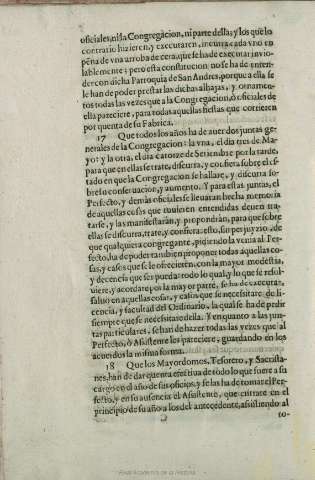 oficiales, ni la Congregacion, ni parte dellas; y los que lo
contrario hizieren, y executaren, incurra cada vno en
pena de vna arroba de cera, que se ha de executar invio-
lablemente; pero esta constitucion no se ha de enten-
der con dicha Parroquia de San Andres, porque a ella se
le han de poder prestar las dichas alhajas, y ornamen-
tos todas las vezes que a la Congregacion, ò oficiales de
ella pareciere, para todas aquellas fiestas que corrieren
por quenta de su Fabrica.
17 Que todos los años ha de auer dos juntas ge-
nerales de la Congregacion: la vna, el dia tres de Ma-
yo; y la otra, el dia catorze de Setiembre por la tarde,
para que en ellas se trate, discurra, y confiera sobre el es-
tado en que la Congregacion se hallare, y discurra so-
bre su conseruacion, y aumento. Y para estas juntas, el
Perfecto, y demàs oficiales lleuaràn hecha memoria
de aquellas cosas que tuuieren entendidas deuen tra-
tarse, y las manifestaràn, y propondràn, para que sobre
ellas se discurra, trate, y confiera: esto, sin perjuyzio, de
que qualquiera congregante, pidiendo la venia al Per-
fecto, ha de poder tambien proponer todas aquellas co-
sas, y casos que se le ofrecieren, con la mayor modestia,
y decencia que ser pueda: todo lo qual, y lo que se resol-
uiere, y acordare por la mayor parte, se ha de executar,
saluo en aquellas cosas, y casos que se necessitare de li-
cencia, y facultad del Ordinario, la qual se ha de pedir
siempre que se necessitare della. Y en quanto a las jun-
tas particulares, se han de hazer todas las vezes que al
Perfecto, ò Asistente les pareciere, guardando en los
acuerdos la misma forma.
18 Que los Mayordomos, Tesorero, y Sacrista-
nes, han de dar quenta efectiua de todo lo que fuere a su
cargo en el año de sus oficios, y se las ha de tomar el Per-
fecto, y en su ausencia el Asistente, que entrare en el
principio de su año a los del antecedente, asistiendo al
to-
Real Academia de la Historia